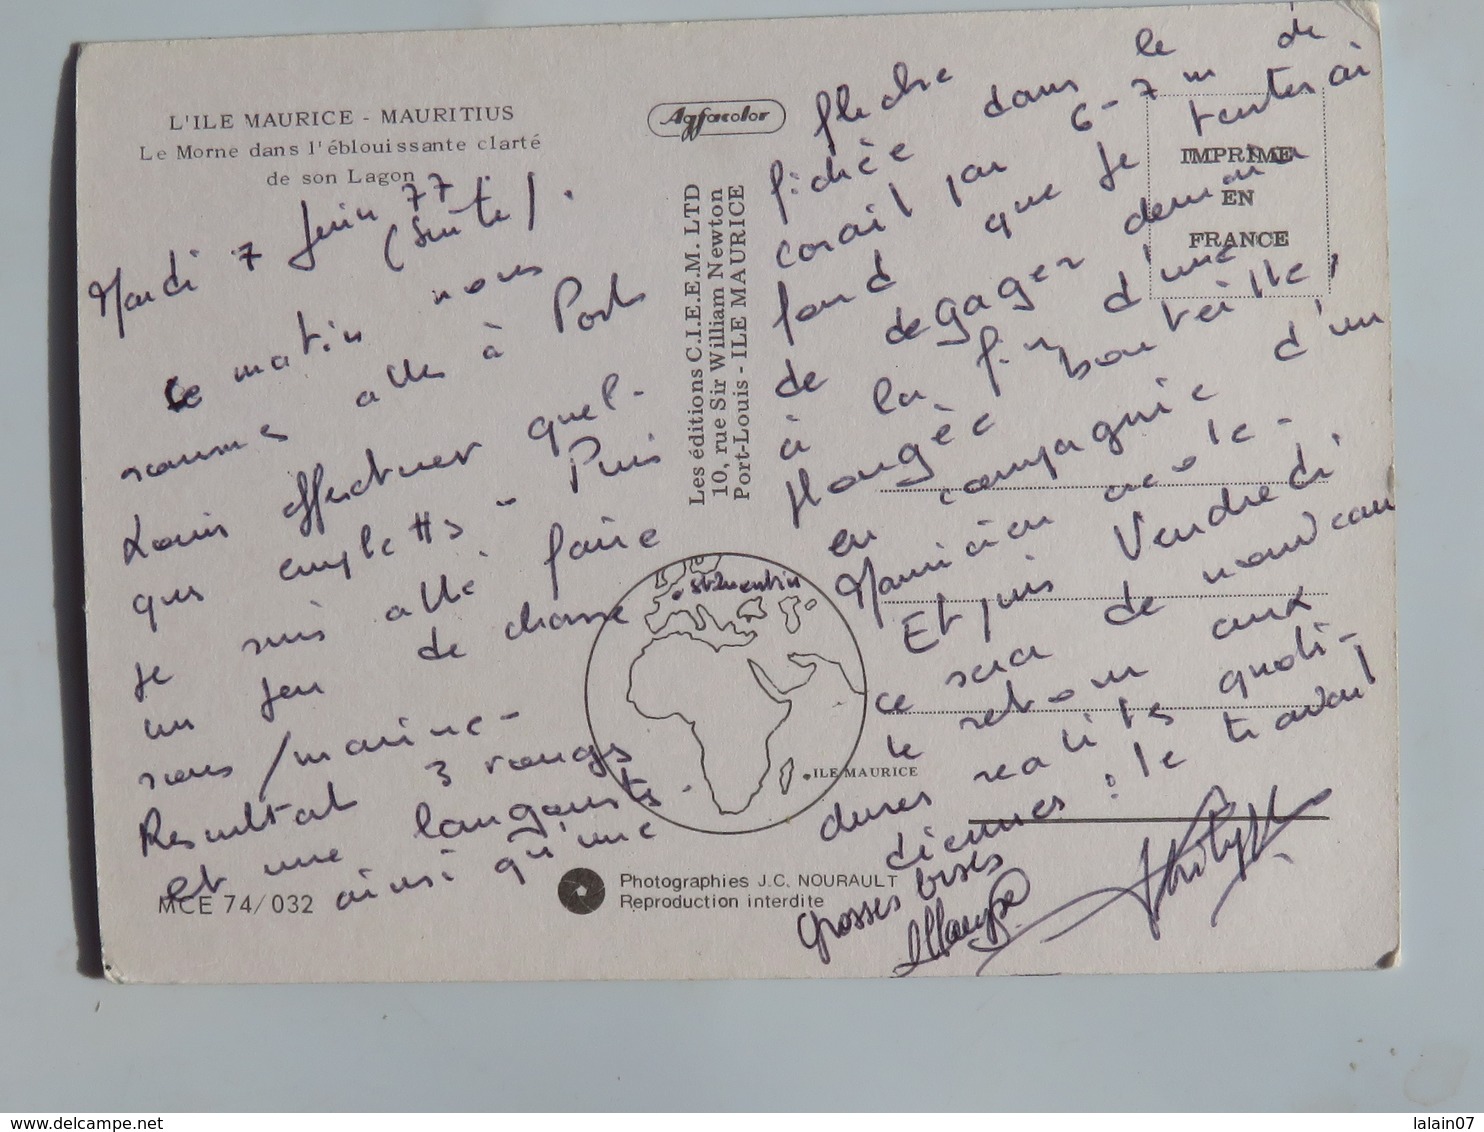 L'ILE MAURICE - MAURITIUS
Le Morne dans l'éblouissante clarté
de son Lagon
Mardi 7 Juin 77
(Suite).
Ce matin nous
sommes allés à Port
Louis effectuer quel-
ques emplettes - Puis
je suis allé faire
un peu de chasse
sous/marine -
Résultat 3 rougs
et une langouste -
ainsi qu'une
MCE 74/032
Agfacolor
Les éditions C.I.E.E.M. LTD
10, rue Sir William Newton
Port-Louis - ILE MAURICE
St Quentin
ILE MAURICE
Photographies J.C. NOURAULT
Reproduction interdite
IMPRIME
EN
FRANCE
flèche
fichée dans le
corail par 6-7 m de
fond que je tenterai
de dégager demain
à la fin d'une
plongée bouteille,
en compagnie d'un
Mauricien
Et puis Vendredi
ce sera de nouveau
le retour aux
dures réalités quoti-
diennes : le travail
Grosses bises